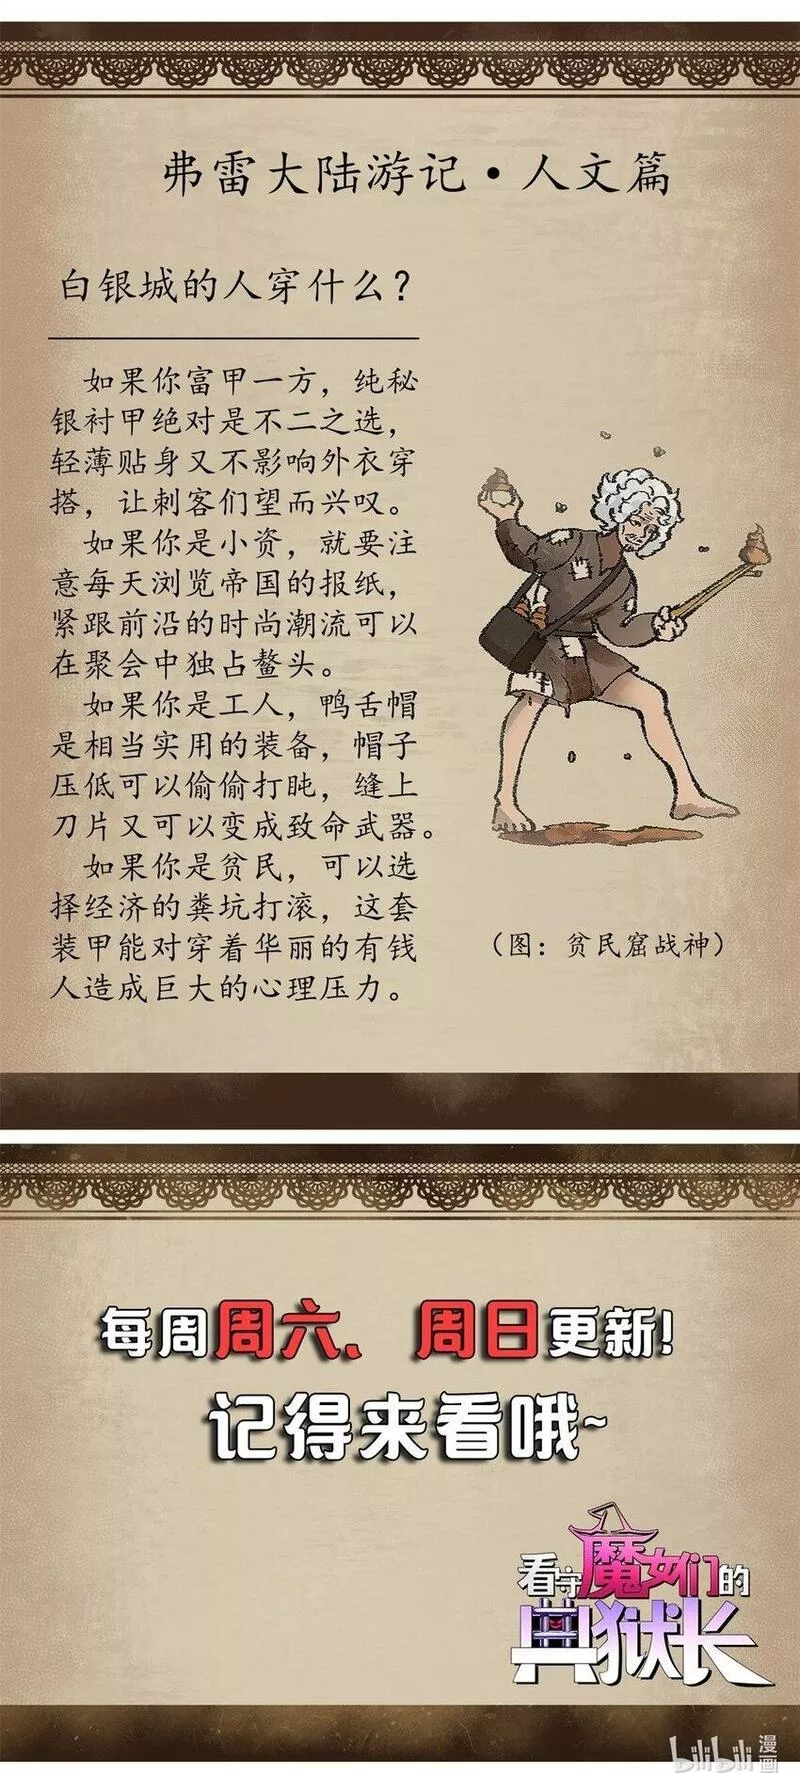 弗雷大陆游记·人文篇
白银城的人穿什么？
如果你富甲一方，纯秘
银衬甲绝对是不二之选，
轻薄贴身又不影响外衣穿
搭，让刺客们望而兴叹。
如果你是小资，就要注
意每天浏览帝国的报纸，
紧跟前沿的时尚潮流可以
在聚会中独占鳌头。
如果你是工人，鸭舌帽
是相当实用的装备，帽子
压低可以偷偷打盹，缝上
刀片又可以变成致命武器。
如果你是贫民，可以选
择经济的粪坑打滚，这套
装甲能对穿着华丽的有钱
人造成巨大的心理压力。
（图：贫民窟战神）
每周周六、周日更新!
记得来看哦~
看守魔女们的
典狱长
bilibili 漫画